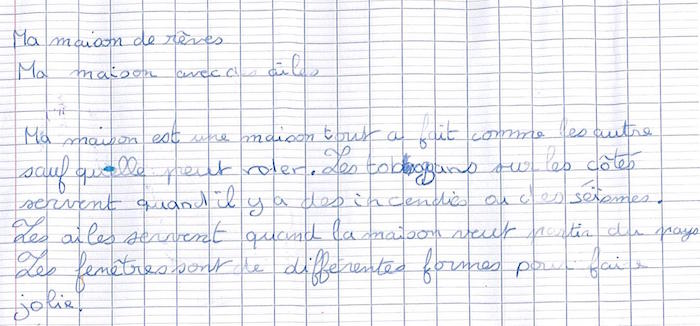 Ma maison de rêves
Ma maison avec des ailes
Ma maison est une maison tout a fait comme les autre
sauf qu'elle peut voler. Les toboggans sur les côtés
servent quand il y a des incendies ou des séismes.
Les ailes servent quand la maison veut partir du pays
Les fenêtres sont de différentes formes pour faire
jolie.